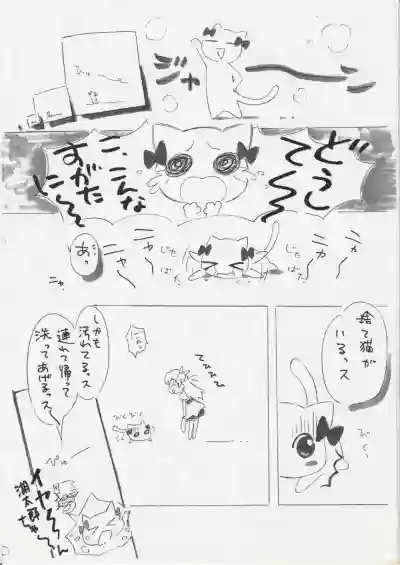 ジャーーン
どうし
て〜〜
こ、こんな
すがた
に〜〜
ニャ
ニャ〜
じた
ばた
じた
ばた
ニャ
ニャ〜
ニャ
あっ
捨て猫が
いるっス
びくっ
しかも
汚れてるっス
連れて帰って
洗ってあげるっス
ぴゅー